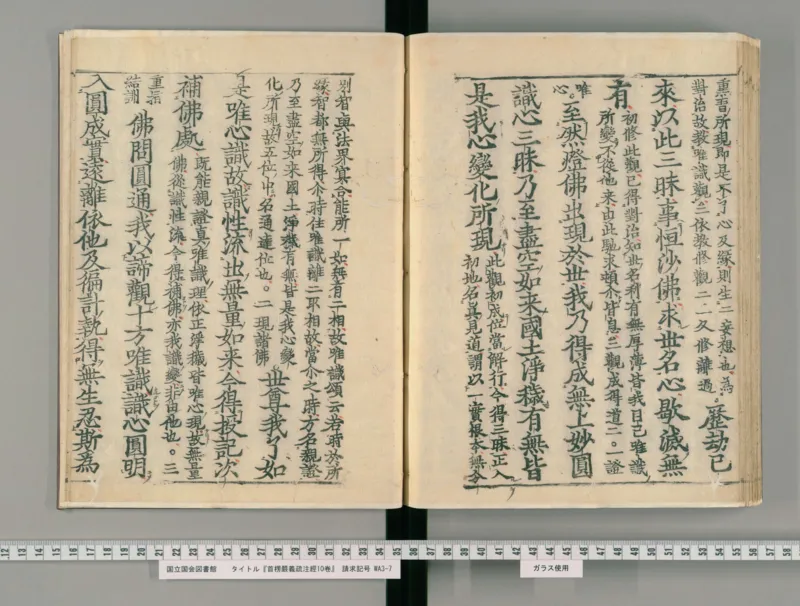 重習所現即是不了心又縣則生二妄想也為
對治故教唯識觀三依教修觀二一久修離過。
歷劫已
來以此三昧事恒沙佛求世名心歇滅無
有
初修此觀已得對治如世名利有無厚薄皆我自己唯識
所變不從他來由此馳求頓亦皆息三觀成得道二。一證
唯
心。
至然燈佛出現於世我乃得成無上妙圓
識心三昧乃至盡空如來國土淨穢有無皆
是我心變化所現
此觀初成位當解行今得三昧正入
初地名眞見道謂以一實根本無分
別智與法界冥合能所一如無有二相故唯識頌云若時於所
緣智都無所得尒時住唯識離二取相故當尒之時方名親證
乃至盡空如來國土淨穢有無皆是我心變
化所現故五位中名通達位也。二現諸佛
世尊我了如
是唯心識故識性流出無量如來今得授記次
補佛處
既能親證真唯識理依正淨穢皆唯心現故無量
佛從識性流今得補佛亦我識變非由他也。三
佛問圓通我以諦觀十方唯識識心圓明
入圓成實遠離依他及徧計執得無生忍斯為
国立国会図書館 タイトル『首楞嚴義疏注經10巻』 請求記号 WA3-7
ガラス使用